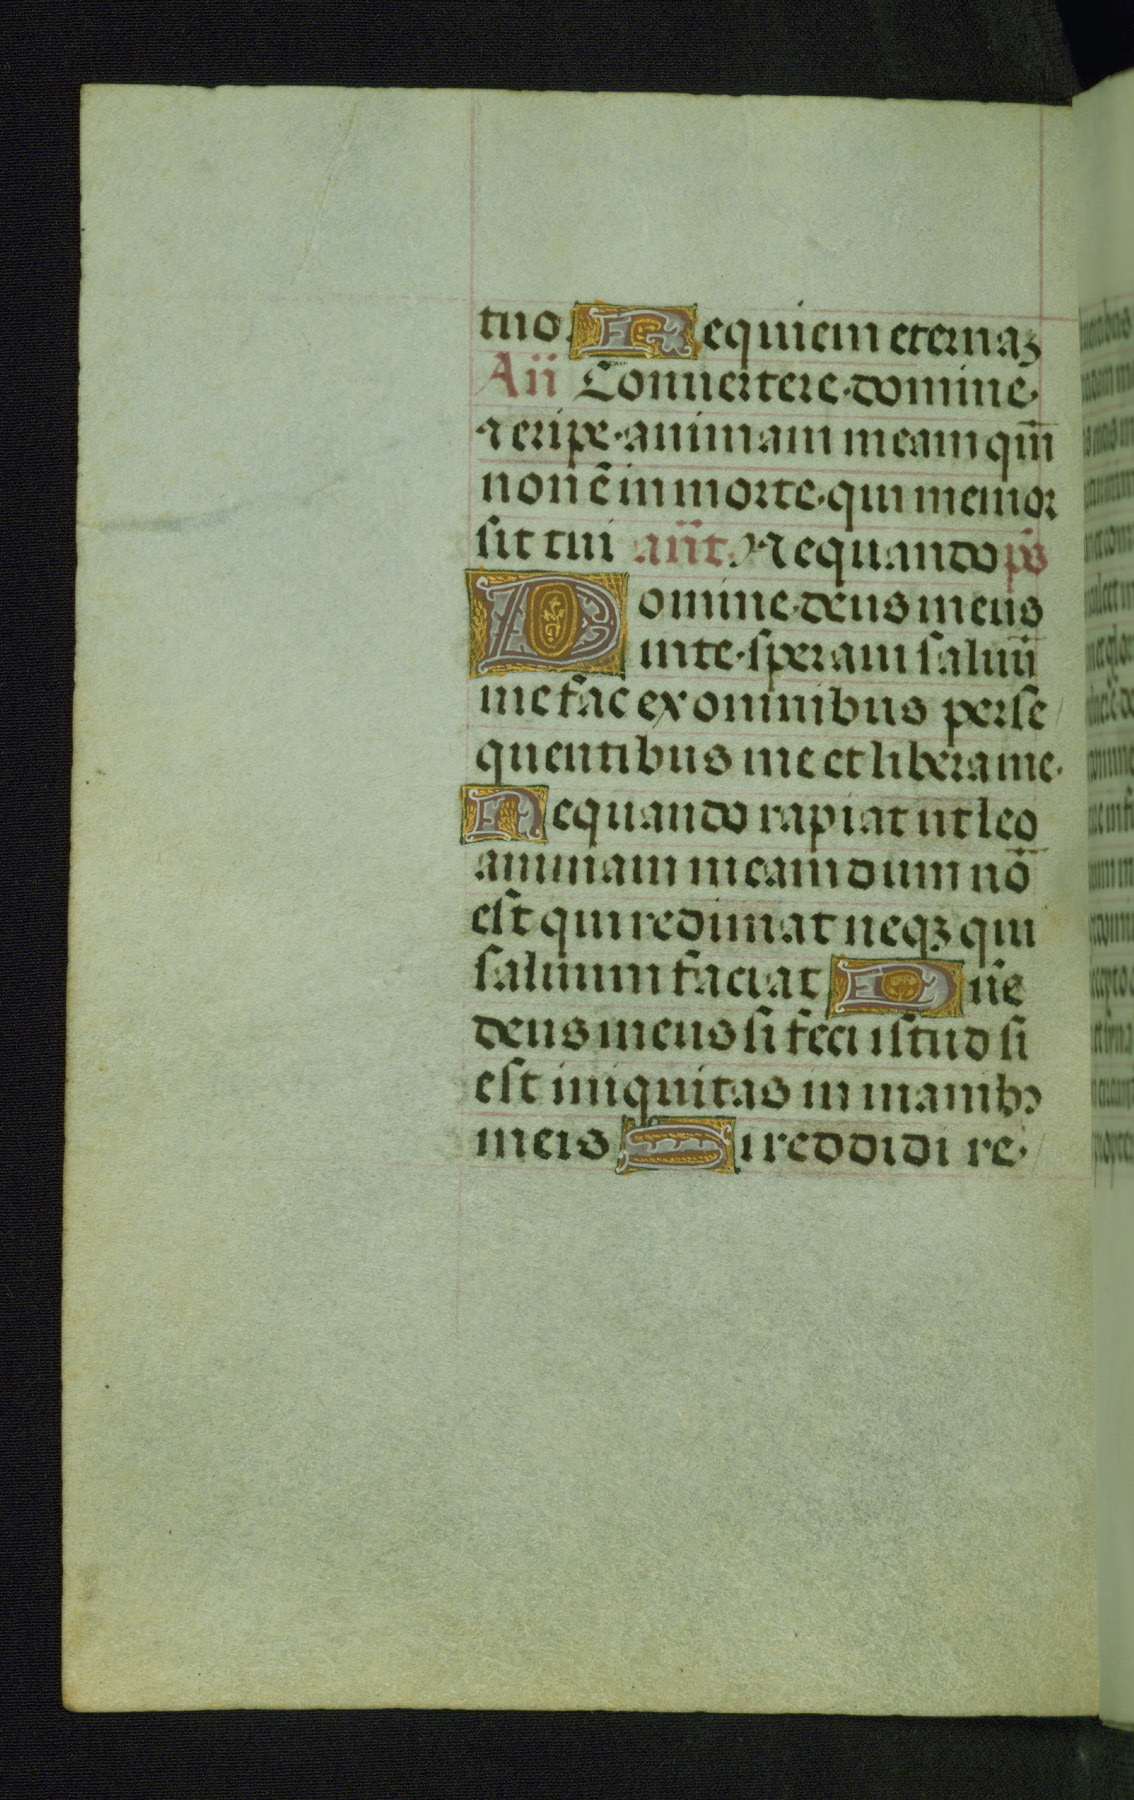 tuo. Requiem eternaꝫ
An̄ Conuertere. domine.
⁊ eripe. animam meam qm̄
non ē in morte. qui memor
sit tui an̄t. Nequando ps̄
Domine. deus meus
in te. speraui saluū
me fac ex omnibus perse
quentibus me et libera me.
Nequando rapiat ut leo
animam meam dum nō
est qui redimat neqꝫ qui
saluum faciat Dn̄e
deus meus si feci istud si
est iniquitas in manibꝯ
meis Si reddidi re.